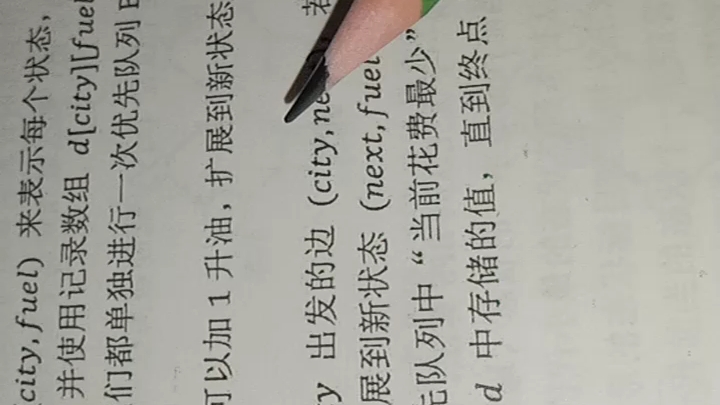 city, fuel) 来表示每个状态，
并使用记录数组 d[city][fuel
们都单独进行一次优先队列 B
可以加 1 升油，扩展到新状态
y 出发的边 (city, ne 若
展到新状态 (next, fuel
先队列中“当前花费最少”
d 中存储的值，直到终点